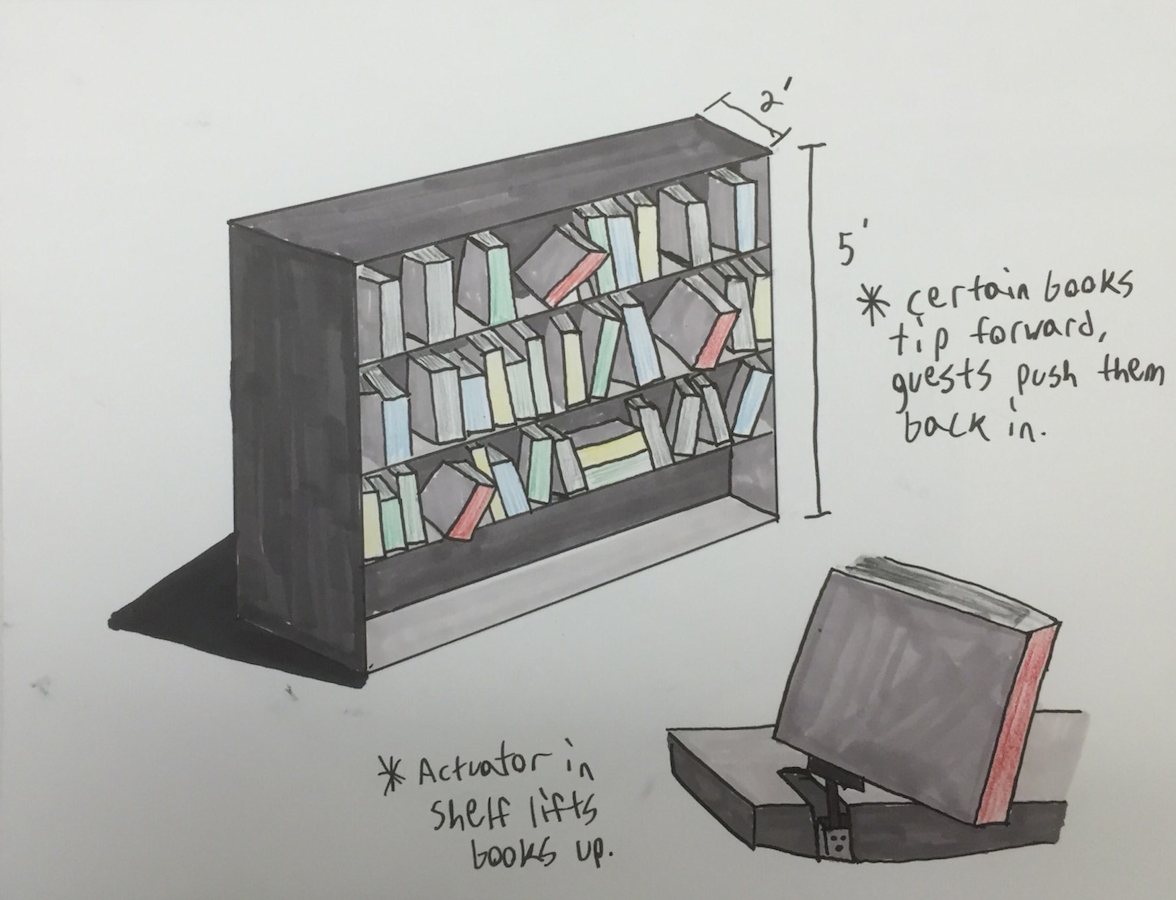 2'
5'
* certain books
tip forward,
guests push them
back in.
* Actuator in
shelf lifts
books up.